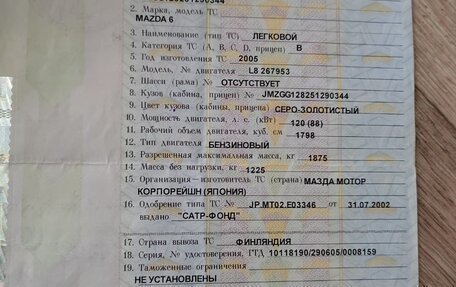 2. Марка, модель ТС
MAZDA 6
3. Наименование (тип ТС) ЛЕГКОВОЙ
4. Категория ТС (A, B, C, D, прицеп) B
5. Год изготовления ТС 2005
6. Модель, № двигателя L8 267953
7. Шасси (рама) № ОТСУТСТВУЕТ
8. Кузов (кабина, прицеп) № JMZGG128251290344
9. Цвет кузова (кабины, прицепа) СЕРО-ЗОЛОТИСТЫЙ
10. Мощность двигателя, л. с. (кВт) 120 (88)
11. Рабочий объем двигателя, куб. см 1798
12. Тип двигателя БЕНЗИНОВЫЙ
13. Разрешенная максимальная масса, кг 1875
14. Масса без нагрузки, кг 1225
15. Организация—изготовитель ТС (страна) МАЗДА МОТОР
КОРПОРЕЙШН (ЯПОНИЯ)
16. Одобрение типа ТС № JP.MT02.E03346 от 31.07.2002
выдано "САТР-ФОНД"
17. Страна вывоза ТС ФИНЛЯНДИЯ
18. Серия, № удостоверения, ГТД 10118190/290605/0008159
19. Таможенные ограничения
НЕ УСТАНОВЛЕНЫ